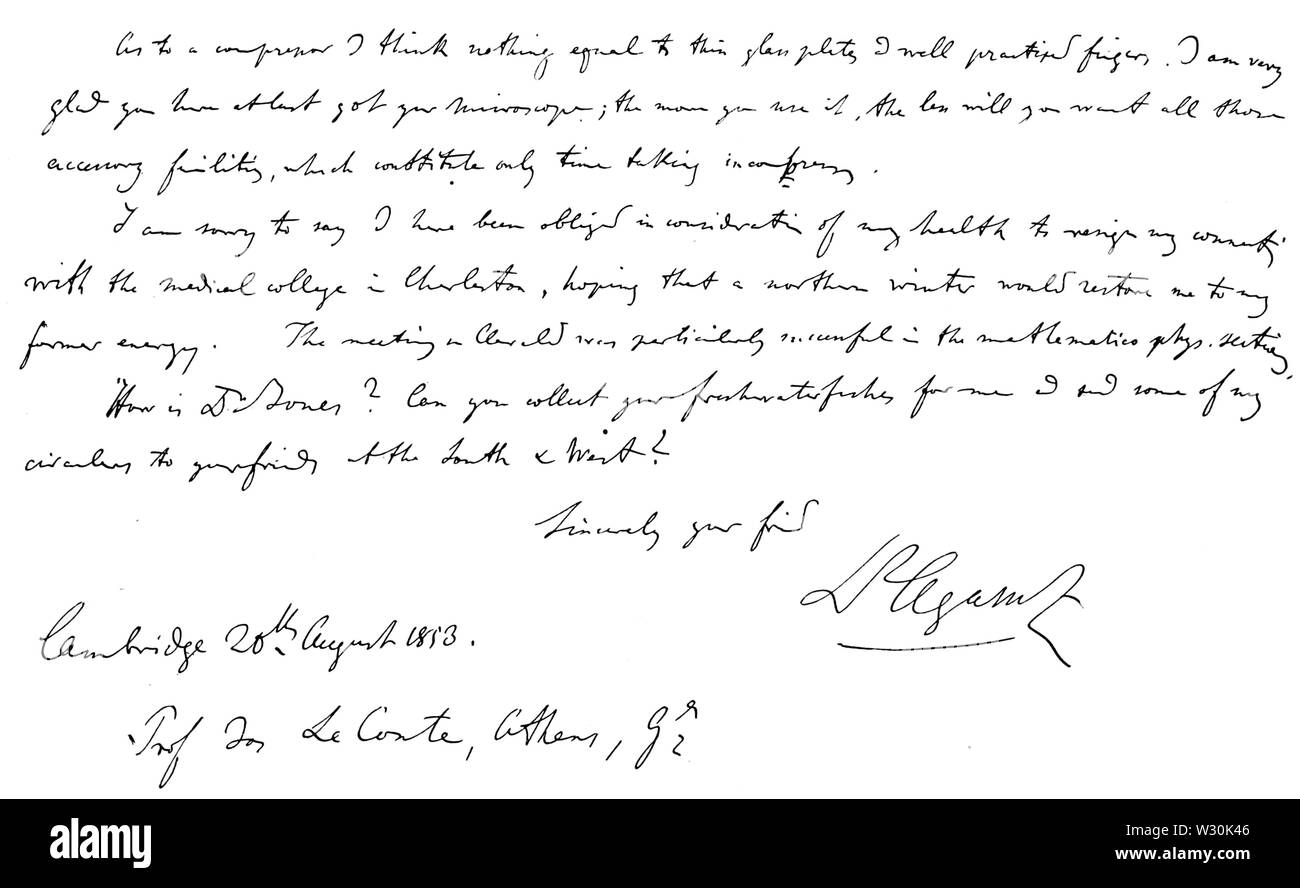 As to a compressor I think nothing equal to thin glass plates & well practised fingers. I am very
glad you have at last got your microscope; the more you use it, the less will you want all those
accessory facilities, which constitute only time taking
I am sorry to say I have been obliged in consideration of my health to resign my connection
with the medical college in Charleston, hoping that a northern winter would restore me to my
former energy. The meeting in Cleveld was particularly successful in the mathematics phys. sections,
How is Dr Jones? Can you collect your freshwater fishes for me & send some of my
circulars to your friends at the South & West?
Sincerely your friend
L Agassiz
Cambridge 20th August 1853.
Prof Jos Le Conte, Athens, Ga
alamy
a
a
alamy
Image ID: W30K46
www.alamy.com